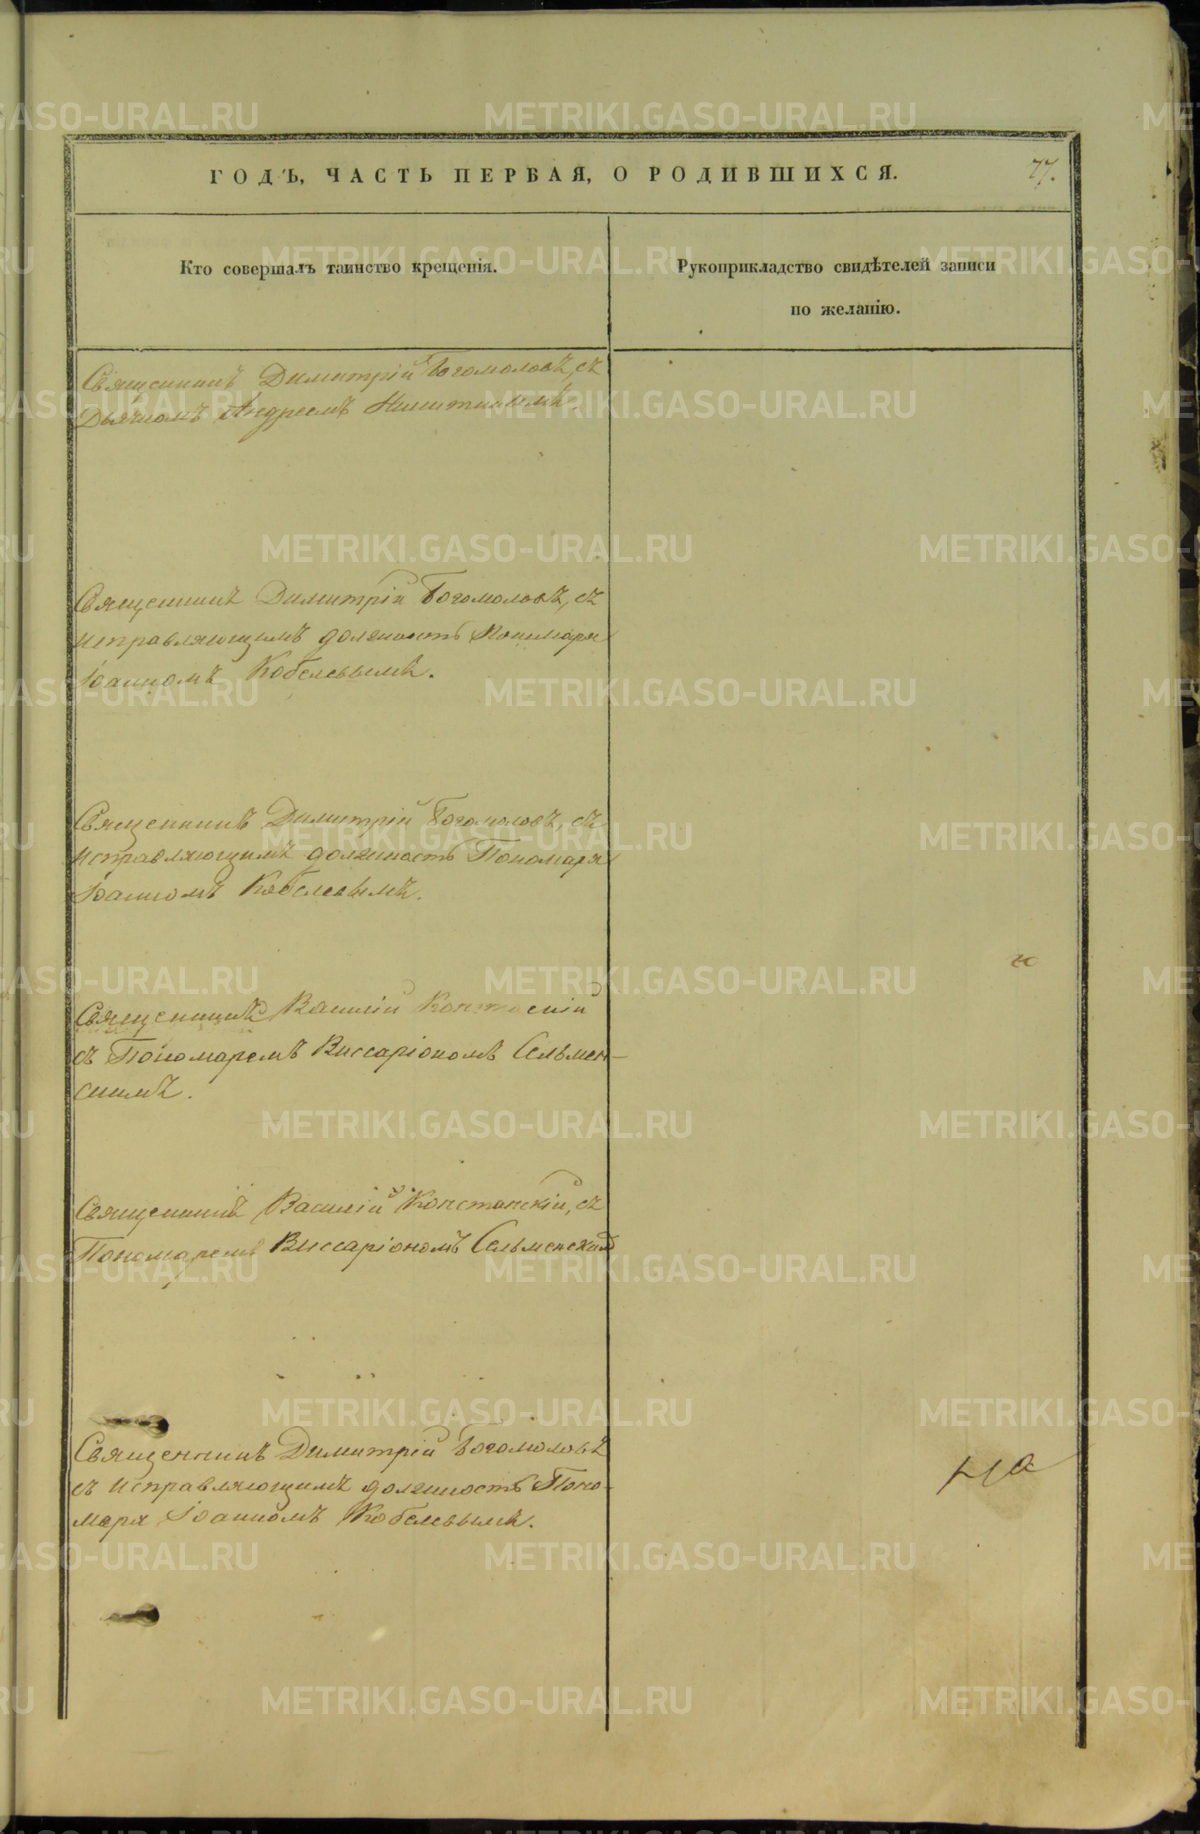 ГОДЪ, ЧАСТЬ ПЕРВАЯ, О РОДИВШИХСЯ.
77.
Кто совершалъ таинство крещенія.
Рукоприкладство свидѣтелей записи
по желанію.
Священникъ Димитрій Богомоловъ, съ
Дьячкомъ Андреемъ
Священникъ Димитрій Богомоловъ, съ
исправляющимъ должность Пономаря
Іоанномъ Кобелевымъ.
Священникъ Димитрій Богомоловъ, съ
исправляющимъ должность Пономаря
Іоанномъ Кобелевымъ.
Священникъ Василій
съ Пономаремъ Виссаріономъ Сельмен-
скимъ.
Священникъ Василій Констанскій, съ
Пономаремъ Виссаріономъ Сельменским
Священникъ Димитрій Богомоловъ
съ исправляющимъ должность Поно-
маря Іоанномъ Кобелевымъ.
на
METRIKI.GASO-URAL.RU